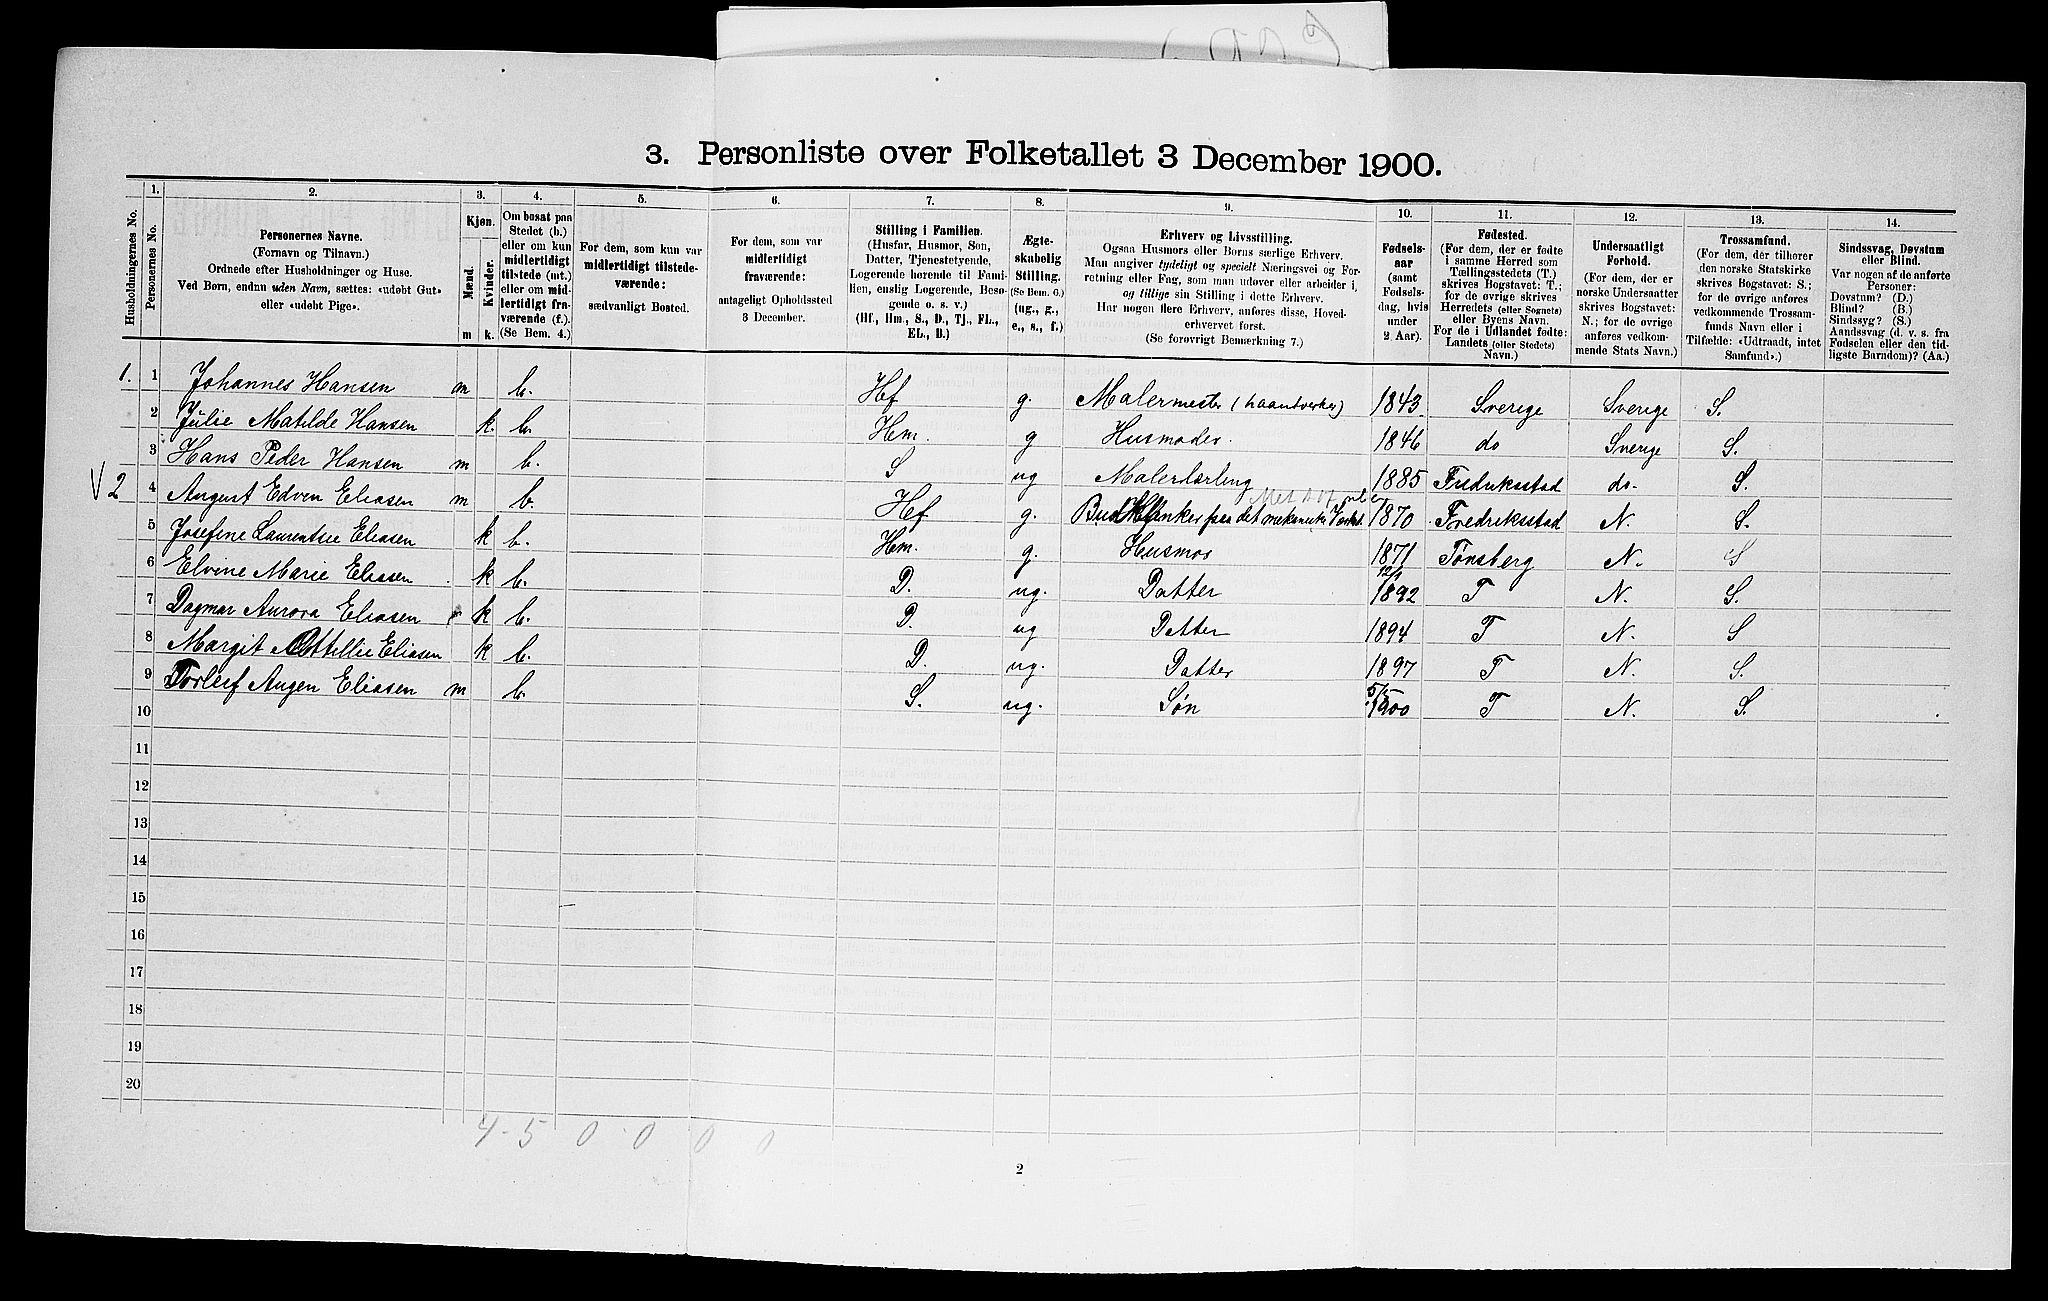 3. Personliste over Folketallet 3 December 1900.
Husholdningernes No.
1.
Personernes No.
2.
Personernes Navne.
(Fornavn og Tilnavn.)
Ordnede efter Husholdninger og Huse.
Ved Børn, endnu uden Navn, sættes: «udøbt Gut»
eller «udøbt Pige».
3.
Kjøn.
Mænd.
Kvinder.
m k.
4.
Om bosat paa
Stedet (b.)
eller om kun
midlertidigt
tilstede (mt.)
eller om mid-
lertidigt fra-
værende (f.).
(Se Bem. 4.)
5.
For dem, som kun var
midlertidigt tilstede-
værende:
sædvanligt Bosted.
6.
For dem, som var
midlertidigt
fraværende:
antageligt Opholdssted
3 December.
7.
Stilling i Familien.
(Husfar, Husmor, Søn,
Datter, Tjenestetyende,
Logerende hørende til Fami-
lien, enslig Logerende, Besø-
gende o. s. v.)
(Hf., Hm., S., D., Tj., FL.,
EL., B.)
8.
Ægte-
skabelig
Stilling.
(Se Bem. 6.)
(ug., g.,
e., s., f.)
9.
Erhverv og Livsstilling.
Ogsaa Husmors eller Børns særlige Erhverv.
Man angiver tydeligt og specielt Næringsvei og For-
retning eller Fag, som man udøver eller arbeider i,
og tillige sin Stilling i dette Erhverv.
Har nogen flere Erhverv, anføres disse, Hoved-
erhvervet først.
(Se forøvrigt Bemærkning 7.)
10.
Fødsels-
aar
(samt
Fødsels-
dag, hvis
under
2 Aar).
11.
Fødested.
(For dem, der er fødte
i samme Herred som
Tællingsstedets (T.)
skrives Bogstavet: T.;
for de øvrige skrives
Herredets (eller Sognets)
eller Byens Navn.
For de i Udlandet fødte:
Landets (eller Stedets)
Navn.)
12.
Undersaatligt
Forhold.
(For dem, der er
norske Undersaatter
skrives Bogstavet:
N.; for de øvrige
anføres vedkom-
mende Stats Navn.)
13.
Trossamfund.
(For dem, der tilhører
den norske Statskirke
skrives Bogstavet: S.;
for de øvrige anføres
vedkommende Trossam-
funds Navn eller i
Tilfælde: «Udtraadt, intet
Samfund».)
14.
Sindssvag, Døvstum
eller Blind.
Var nogen af de anførte
Personer:
Døvstum? (D.)
Blind? (B.)
Sindssyg? (S.)
Aandssvag (d. v. s. fra
Fødselen eller den tid-
ligste Barndom)? (Aa.)
1. 1 Johannes Hansen m b. Hf g. Malermester (haandverker) 1843 Sverige Sverige S.
2 Julie Matilde Hansen k. b. Hm. g Husmoder. 1846 do Sverige S.
3 Hans Peder Hansen m b. S ug Malerlærling 1885 Fredriksstad do. S.
V 2 4 August Edven Eliasen m b. Hf g. paa det mekaniske Værkst 1870 Fredriksstad N. S.
5 Josefine Laurentse Eliasen k b. Hm. g. Husmor 1871 Tønsberg N. S
6 Elvine Marie Eliasen k b. D. ug. Datter 12/1 1892 T N. S.
7 Dagmar Aurora Eliasen k b. D. ug Datter 1894 T N. S
8 Margit Ottellie Eliasen k b. D. ug. Datter 1897 T N. S.
9 Torleif Augen Eliasen m b. S. ug. Søn 5/5 1900 T N. S.
10
11
12
13
14
15
16
17
18
19
20
4 - 5 0 - 0 0 0
2